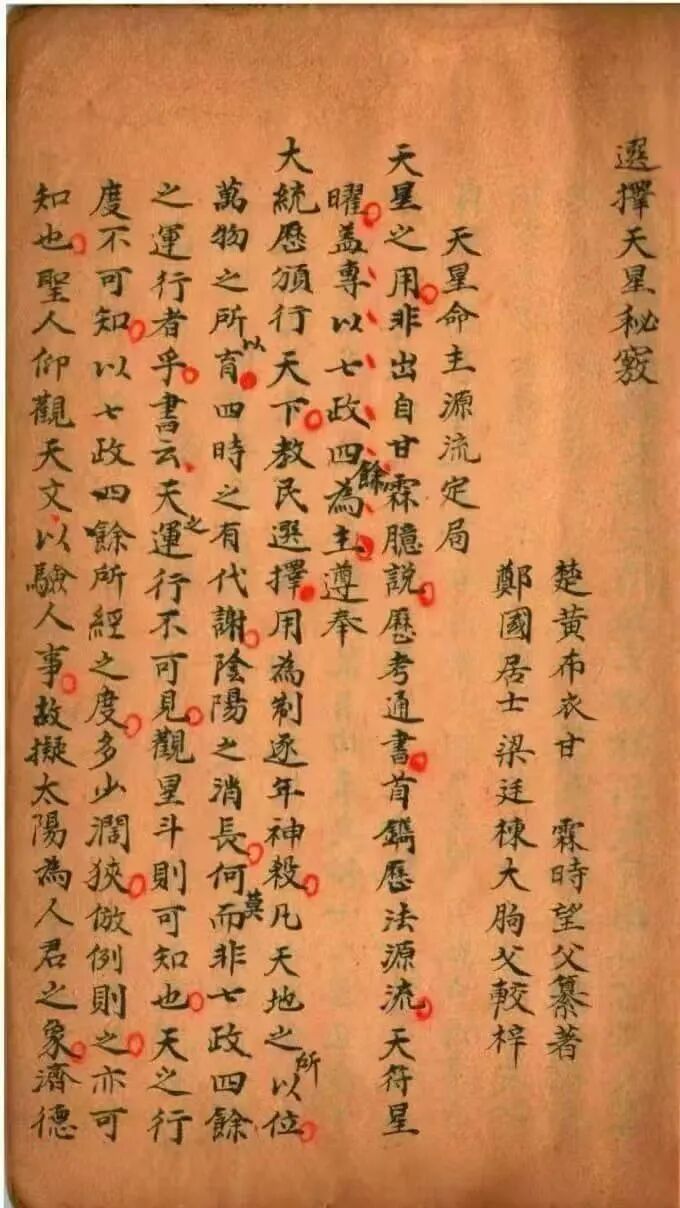 選擇天星秘竅
楚黃布衣甘 霖時望父纂著
鄭國居士梁廷棟大胊父較梓
天星命主源流定局
天星之用非出自甘霖臆說歷考通書首鐫歷法源流天符星
曜蓋專以七政四餘為主遵奉
大統歷頒行天下教民選擇用為制逐年神殺凡天地之所以位
萬物之所以育四時之有代謝陰陽之消長何莫而非七政四餘
之運行者乎書云天之運行不可見觀星斗則可知也天之行
度不可知以七政四餘所經之度多少濶狹倣例則之亦可
知也聖人仰觀天文以驗人事故擬太陽為人君之象濟德